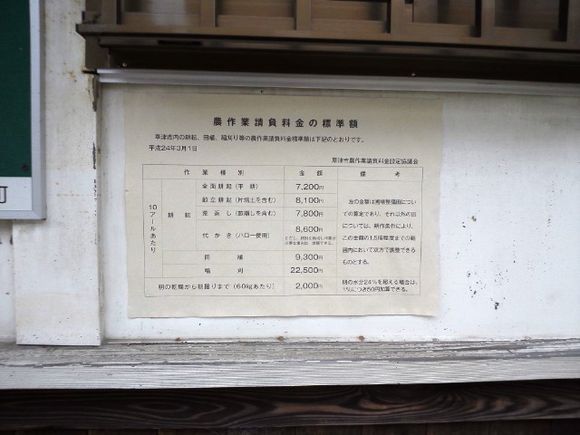 農作業請負料金の標準額
草津市内の耕起、田植、稲刈り等の農作業請負料金標準額は下記のとおりです。
平成24年3月1日
草津市農作業請負料金設定協議会
作業種別 金額 備考
10アールあたり
耕起
全面耕起(平耕) 7,200円
畝立耕起(片培土を含む) 8,100円
荒返し(畝崩しを含む) 7,800円
代かき(ハロー使用) 8,600円
田植 9,300円
稲刈 22,500円
左の金額は圃場整備田につい
ての算定であり、それ以外の田
については、耕作条件により、
この金額の1.5倍程度までの範
囲内において双方で調整できる
ものとする。
籾の乾燥から籾摺りまで(60kgあたり) 2,000円
籾の水分24%を超える場合は、
1%につき50円加算できる。
町